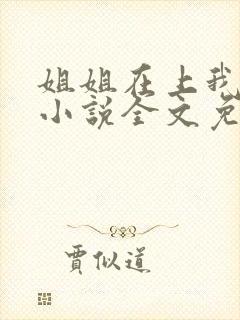 姐姐在上我
小说全文免
贾似道